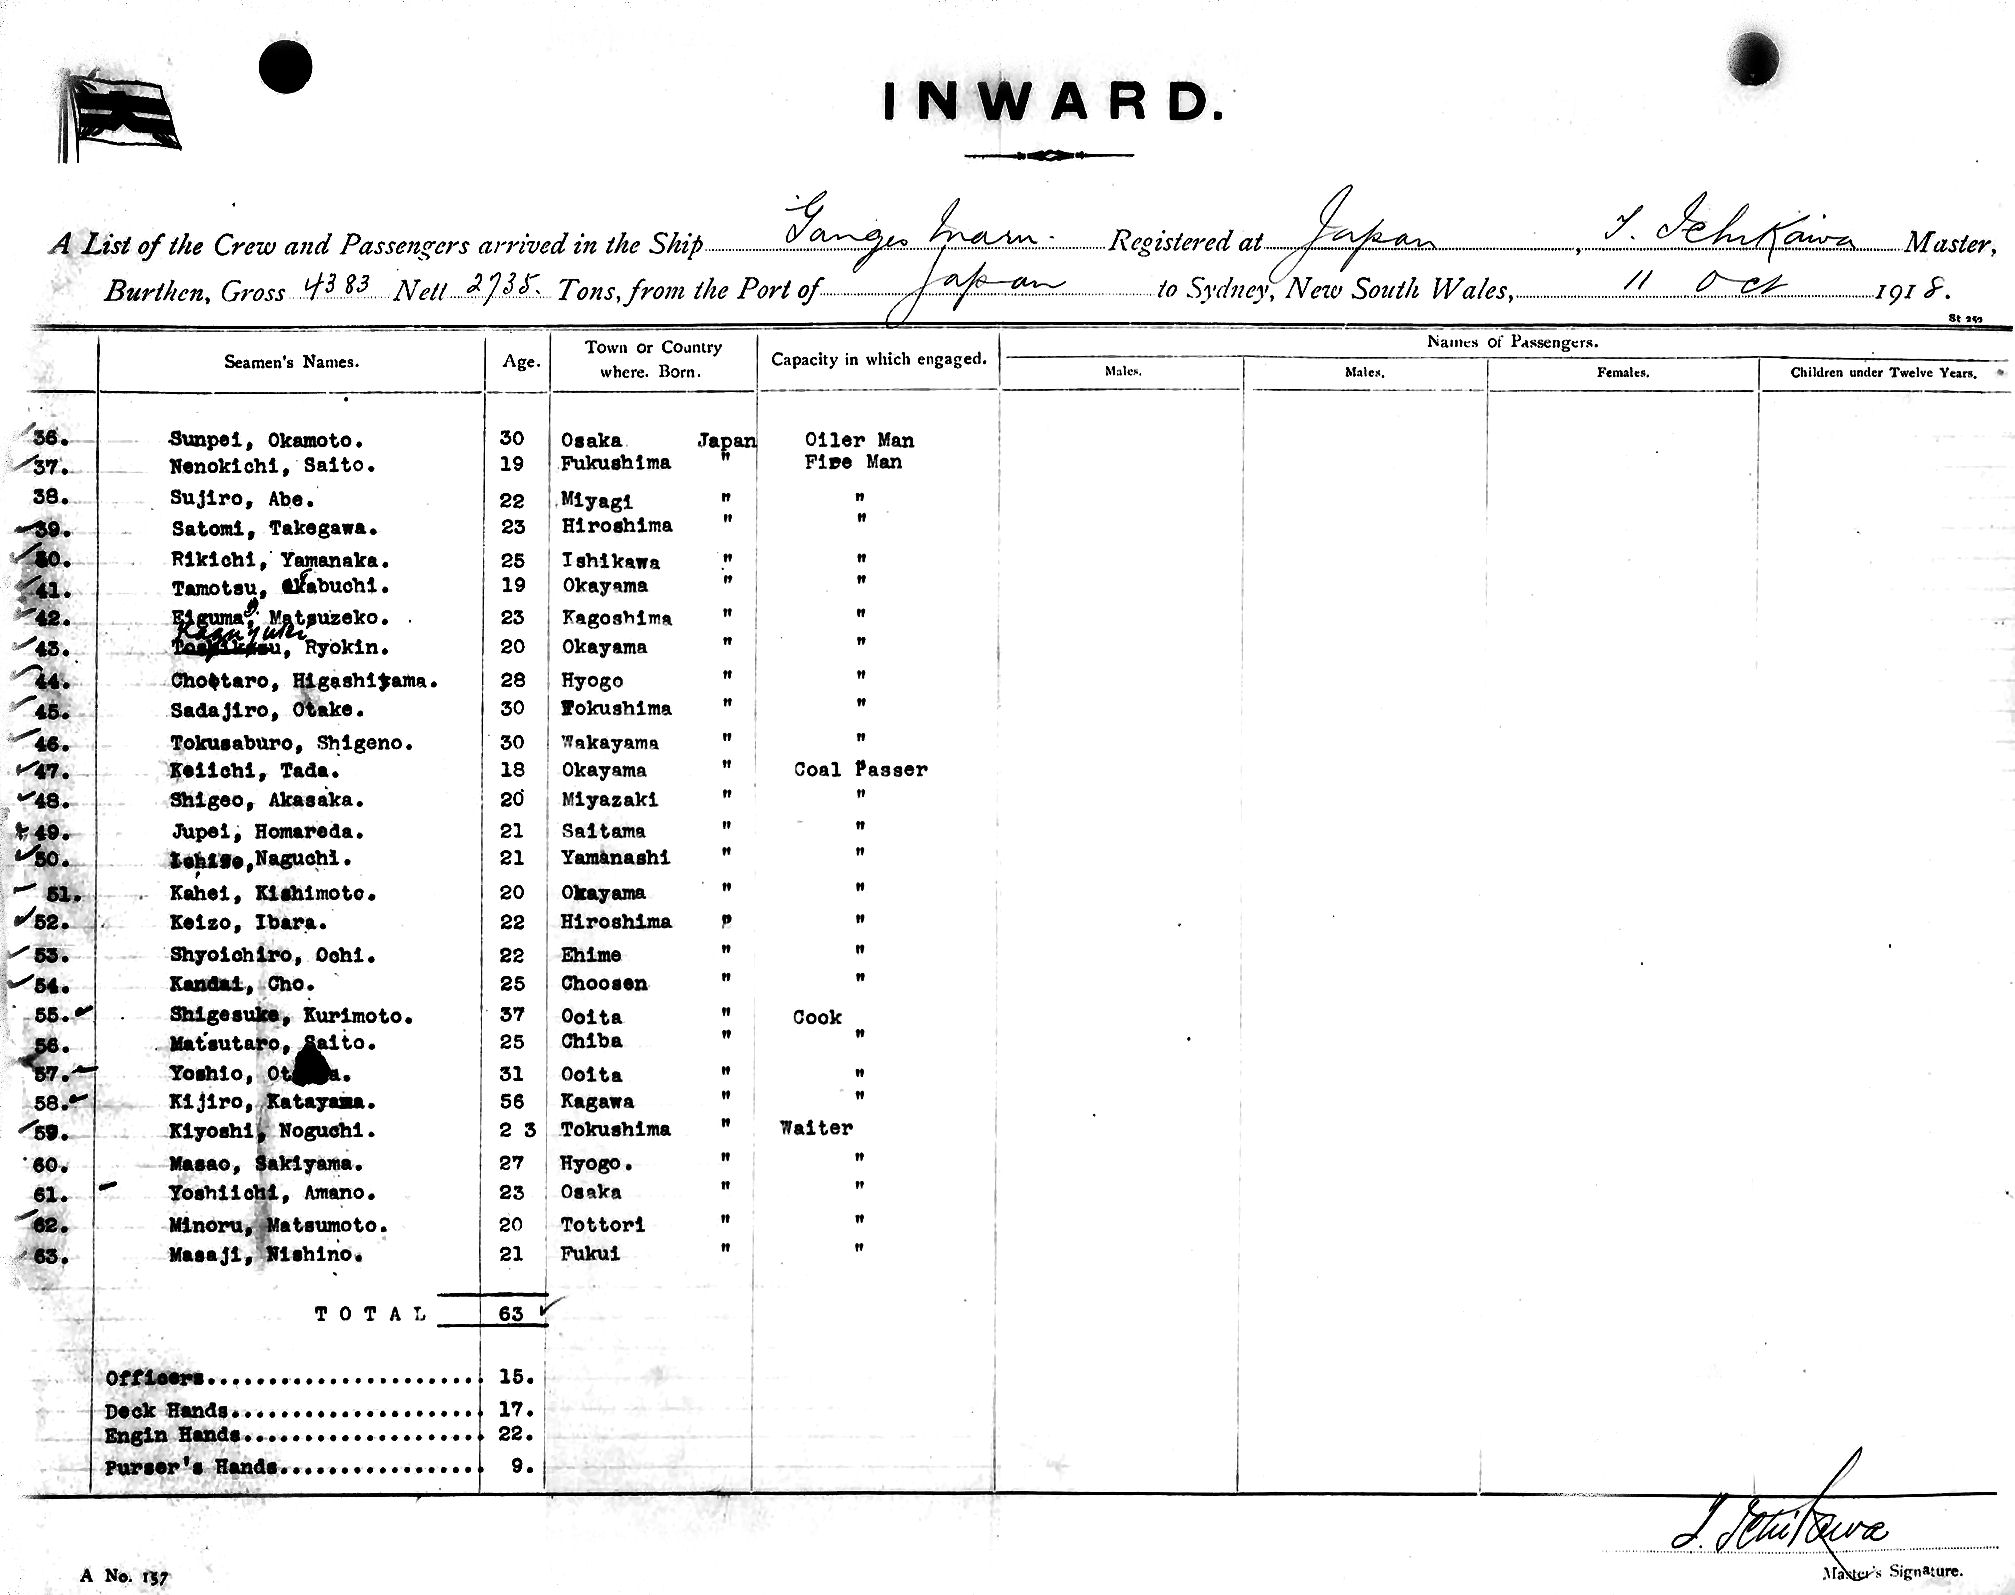 INWARD.
A List of the Crew and Passengers arrived in the Ship Ganges Maru. Registered at Japan, T. Ichikawa Master,
Burthen, Gross 4383 Nett 2735. Tons, from the Port of Japan to Sydney, New South Wales, 11 Oct 1918.
St 257
Seamen's Names. Age. Town or Country where. Born. Capacity in which engaged. Names of Passengers.
Males. Males. Females. Children under Twelve Years.
36. Sunpei, Okamoto. 30 Osaka Japan Oiler Man
37. Nenokichi, Saito. 19 Fukushima " Fire Man
38. Sujiro, Abe. 22 Miyagi " "
39. Satomi, Takegawa. 23 Hiroshima " "
40. Rikichi, Yamanaka. 25 Ishikawa " "
41. Tamotsu, Okabuchi. 19 Okayama " "
42. Eiguma, Matsuzeko. 23 Kagoshima " "
43. Kazuyuki, Ryokin. 20 Okayama " "
44. Chootaro, Higashiyama. 28 Hyogo " "
45. Sadajiro, Otake. 30 Tokushima " "
46. Tokusaburo, Shigeno. 30 Wakayama " "
47. Keiichi, Tada. 18 Okayama " Coal Passer
48. Shigeo, Akasaka. 20 Miyazaki " "
49. Jupei, Homareda. 21 Saitama " "
50. Naguchi. 21 Yamanashi " "
51. Kahei, Kishimoto. 20 Okayama " "
52. Keizo, Ibara. 22 Hiroshima " "
53. Shyoichiro, Ochi. 22 Ehime " "
54. Kandai, Cho. 25 Choosen " "
55. Shigesuke, Kurimoto. 37 Ooita " Cook
56. Matsutaro, Saito. 25 Chiba " "
57. Yoshio, 31 Ooita " "
58. Kijiro, Katayama. 56 Kagawa " "
59. Kiyoshi, Noguchi. 2 3 Tokushima " Waiter
60. Masao, Sakiyama. 27 Hyogo. " "
61. Yoshiichi, Amano. 23 Osaka " "
62. Minoru, Matsumoto. 20 Tottori " "
63. Masaji, Nishino. 21 Fukui " "
TOTAL 63
Officers....................... 15.
Deck Hands..................... 17.
Engin Hands.................... 22.
Purser's Hands................. 9.
T. Ichikawa
Master's Signature.
A No. 157